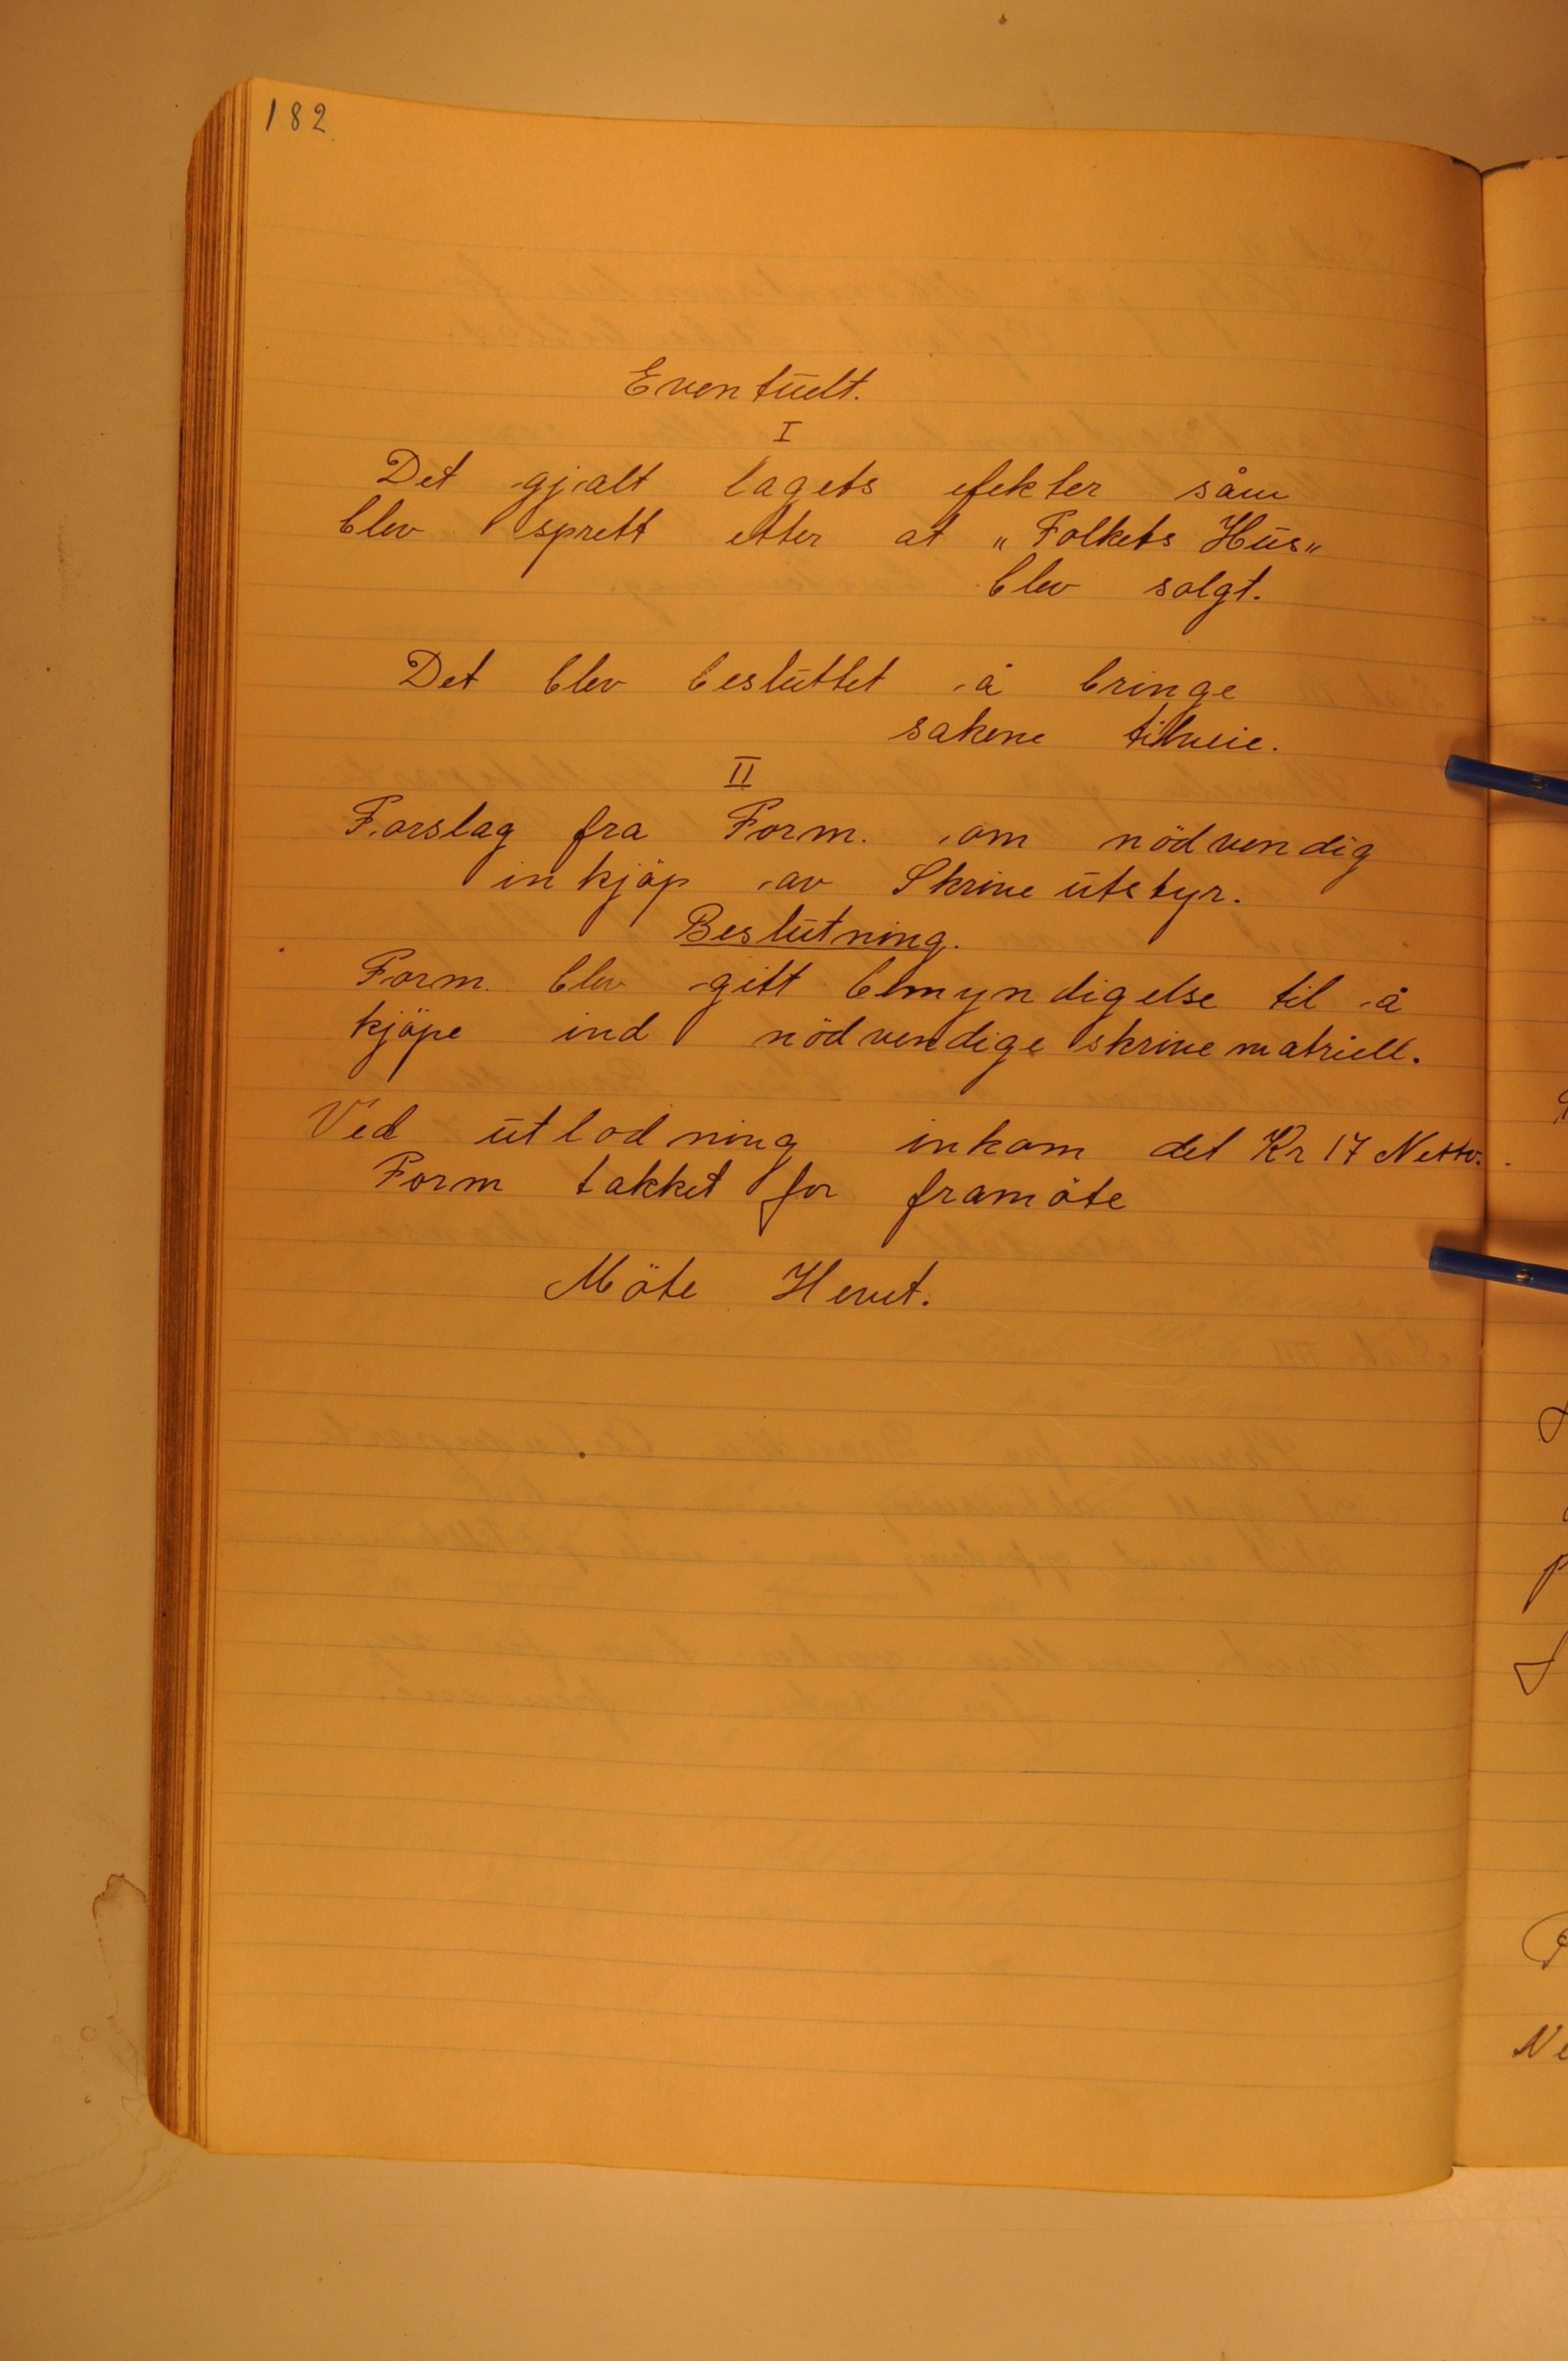 182
Eventuelt.
I
Det gjalt lagets efekter såm
blev sprett etter at „Folkets Hus„
blev solgt.
Det blev besluttet å bringe
sakene tilveie.
II
Forslag fra Form. om nödvendig
inkjöp av Skrive utstyr.
Beslutning.
Form. blev gitt bemyndigelse til å
kjöpe ind nödvendige skrive matriell.
Ved utlodning inkom det Kr 17 Netto.
Form takket for framöte
Möte Hevet.